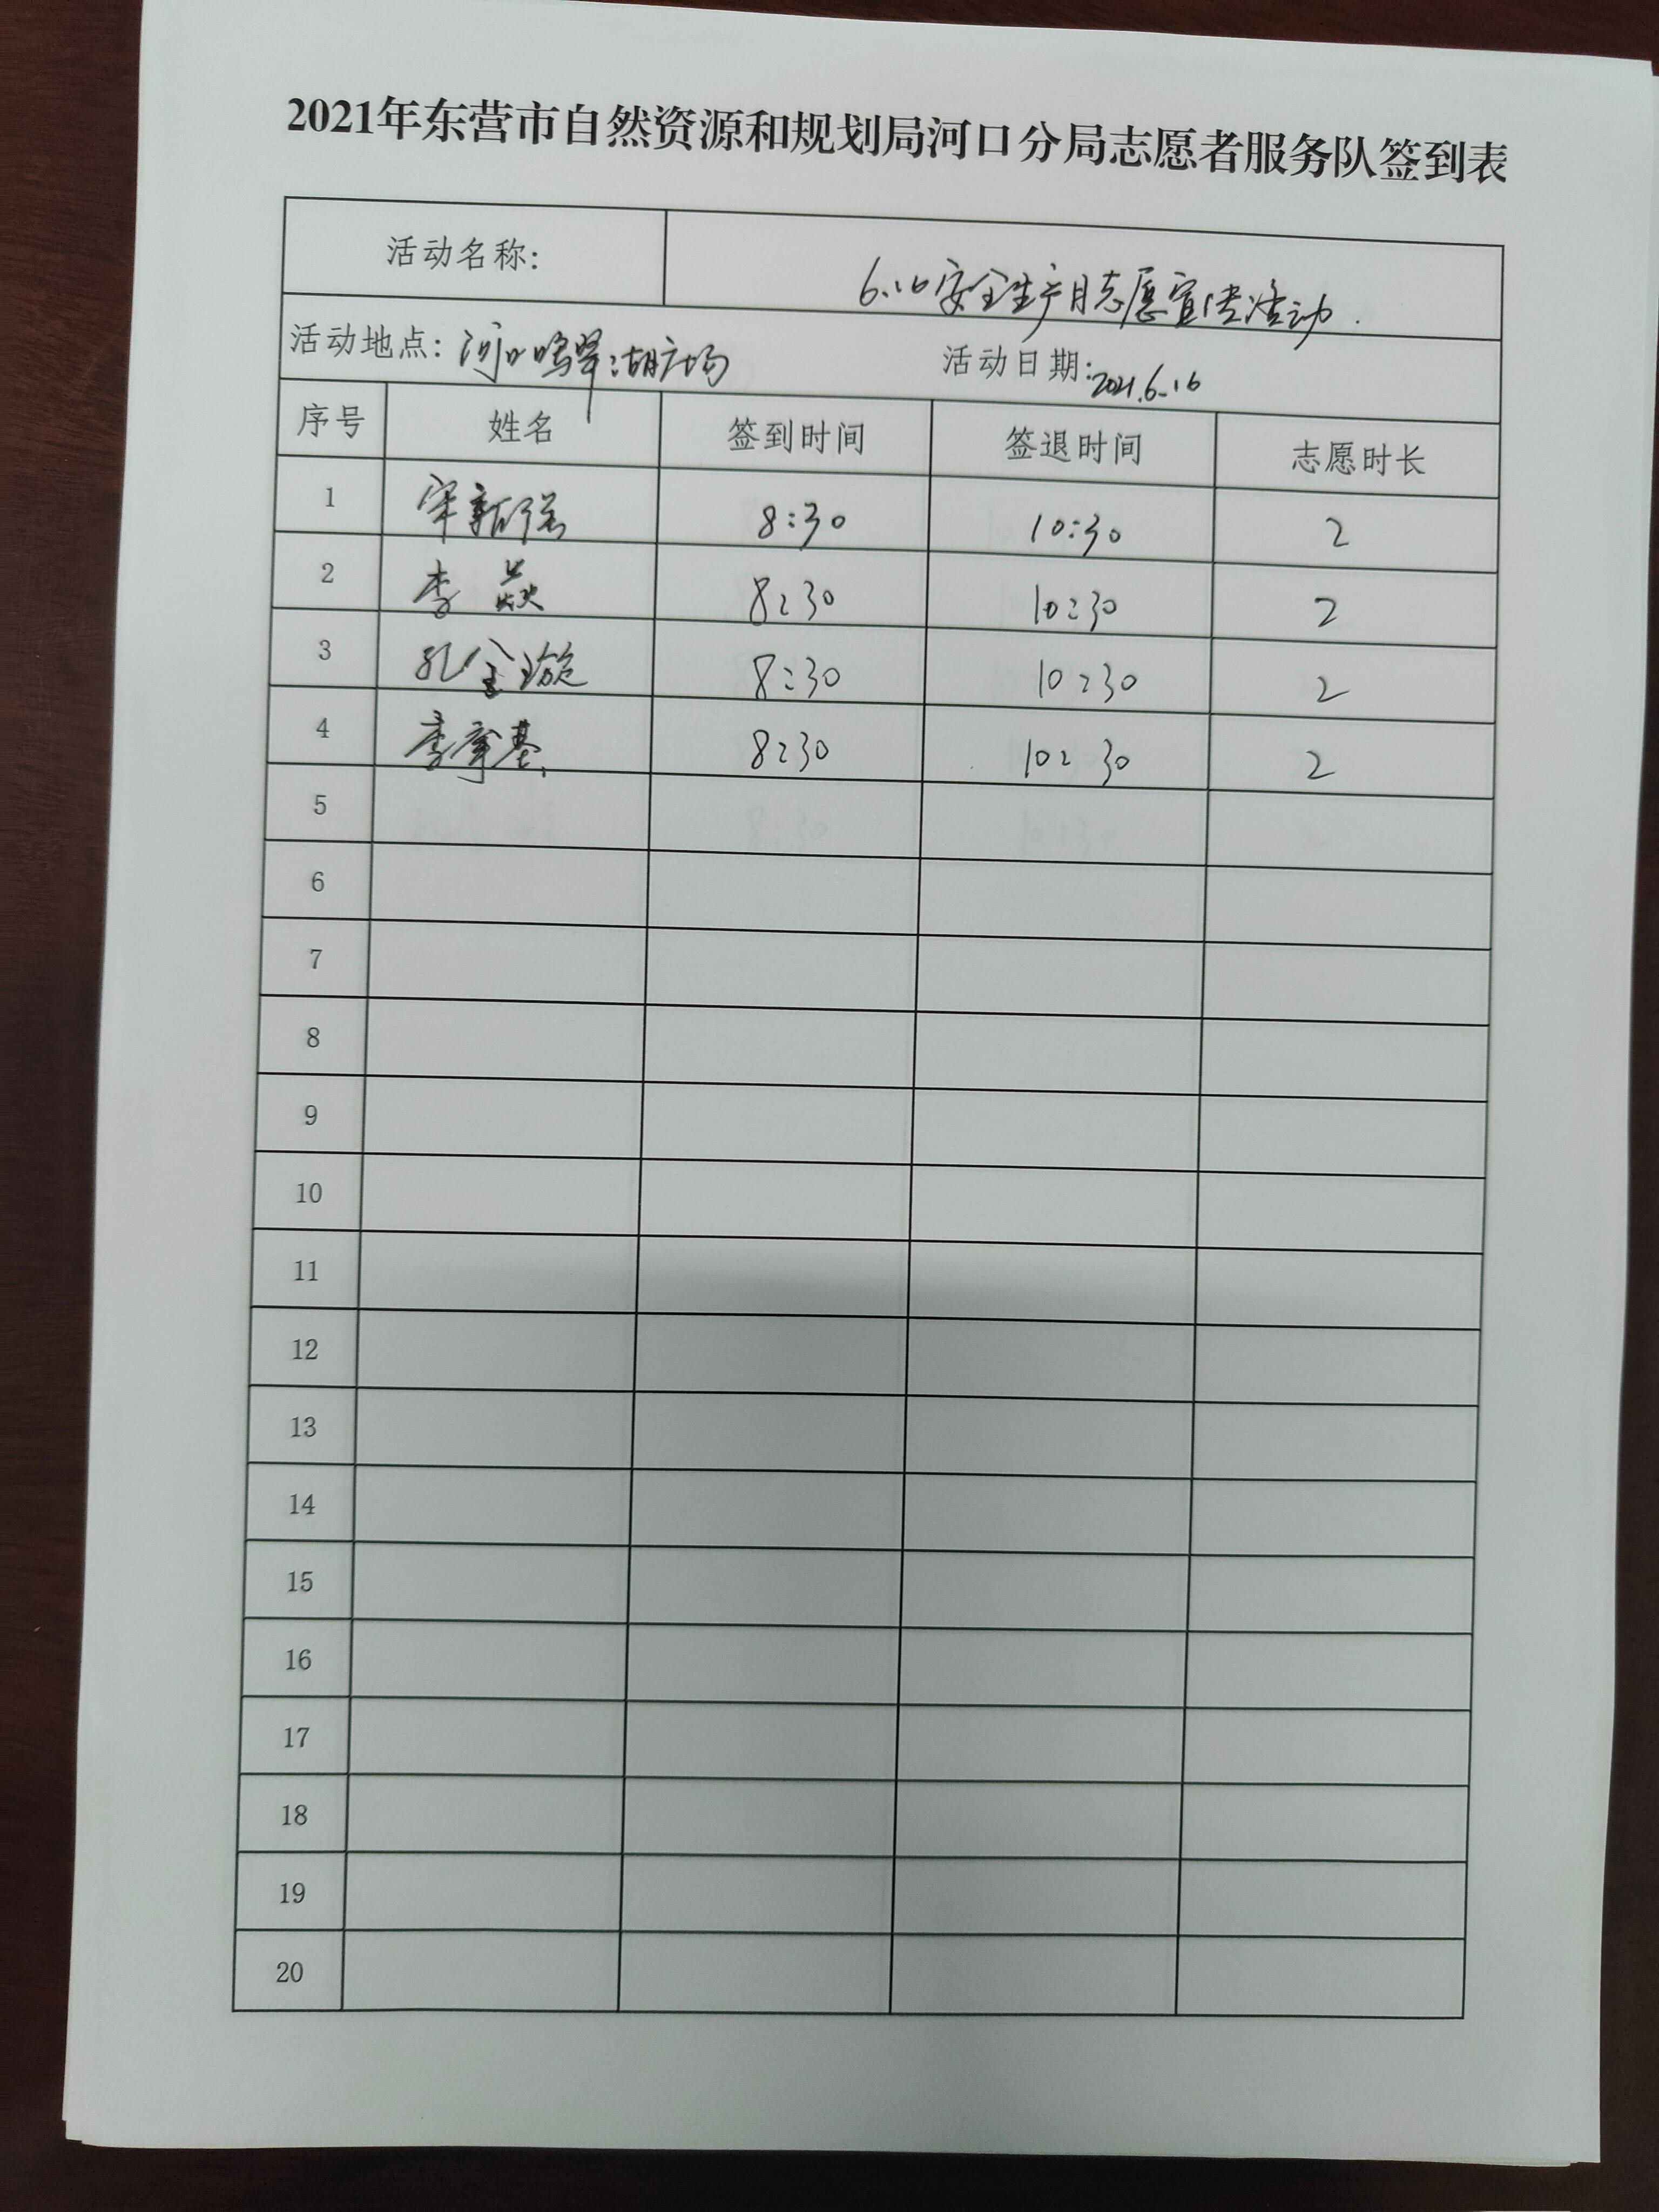 2021年东营市自然资源和规划局河口分局志愿者服务队签到表
活动名称: 6.16安全生产月志愿宣传活动.
活动地点: 河口鸣翠湖广场 活动日期: 2021.6.16
序号 姓名 签到时间 签退时间 志愿时长
1 宋新强 8:30 10:30 2
2 李焱 8:30 10:30 2
3 孔金璇 8:30 10:30 2
4 8:30 10:30 2
5
6
7
8
9
10
11
12
13
14
15
16
17
18
19
20